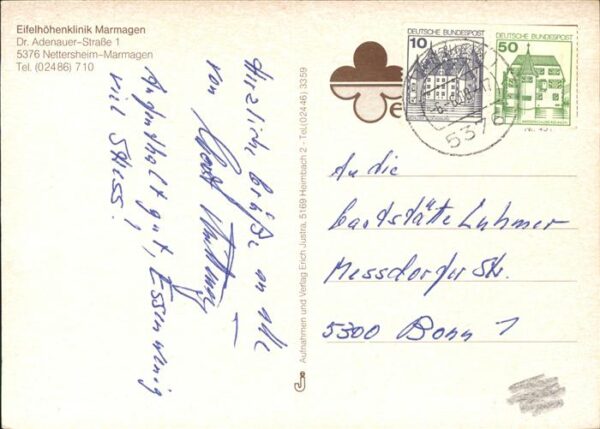 Eifelhöhenklinik Marmagen
Dr. Adenauer-Straße 1
5376 Nettersheim-Marmagen
Tel. (02486) 710
Herzliche Grüße an alle
von
Aufenthalt gut, Essen wenig
viel Stress!
Aufnahmen und Verlag Erich Justra, 5169 Heimbach 2 - Tel. (02446) 3359
DEUTSCHE BUNDESPOST
10
DEUTSCHE BUNDESPOST
50
5376
An die
Gaststätte Luhmer
Messdorfer Str.
5300 Bonn 1